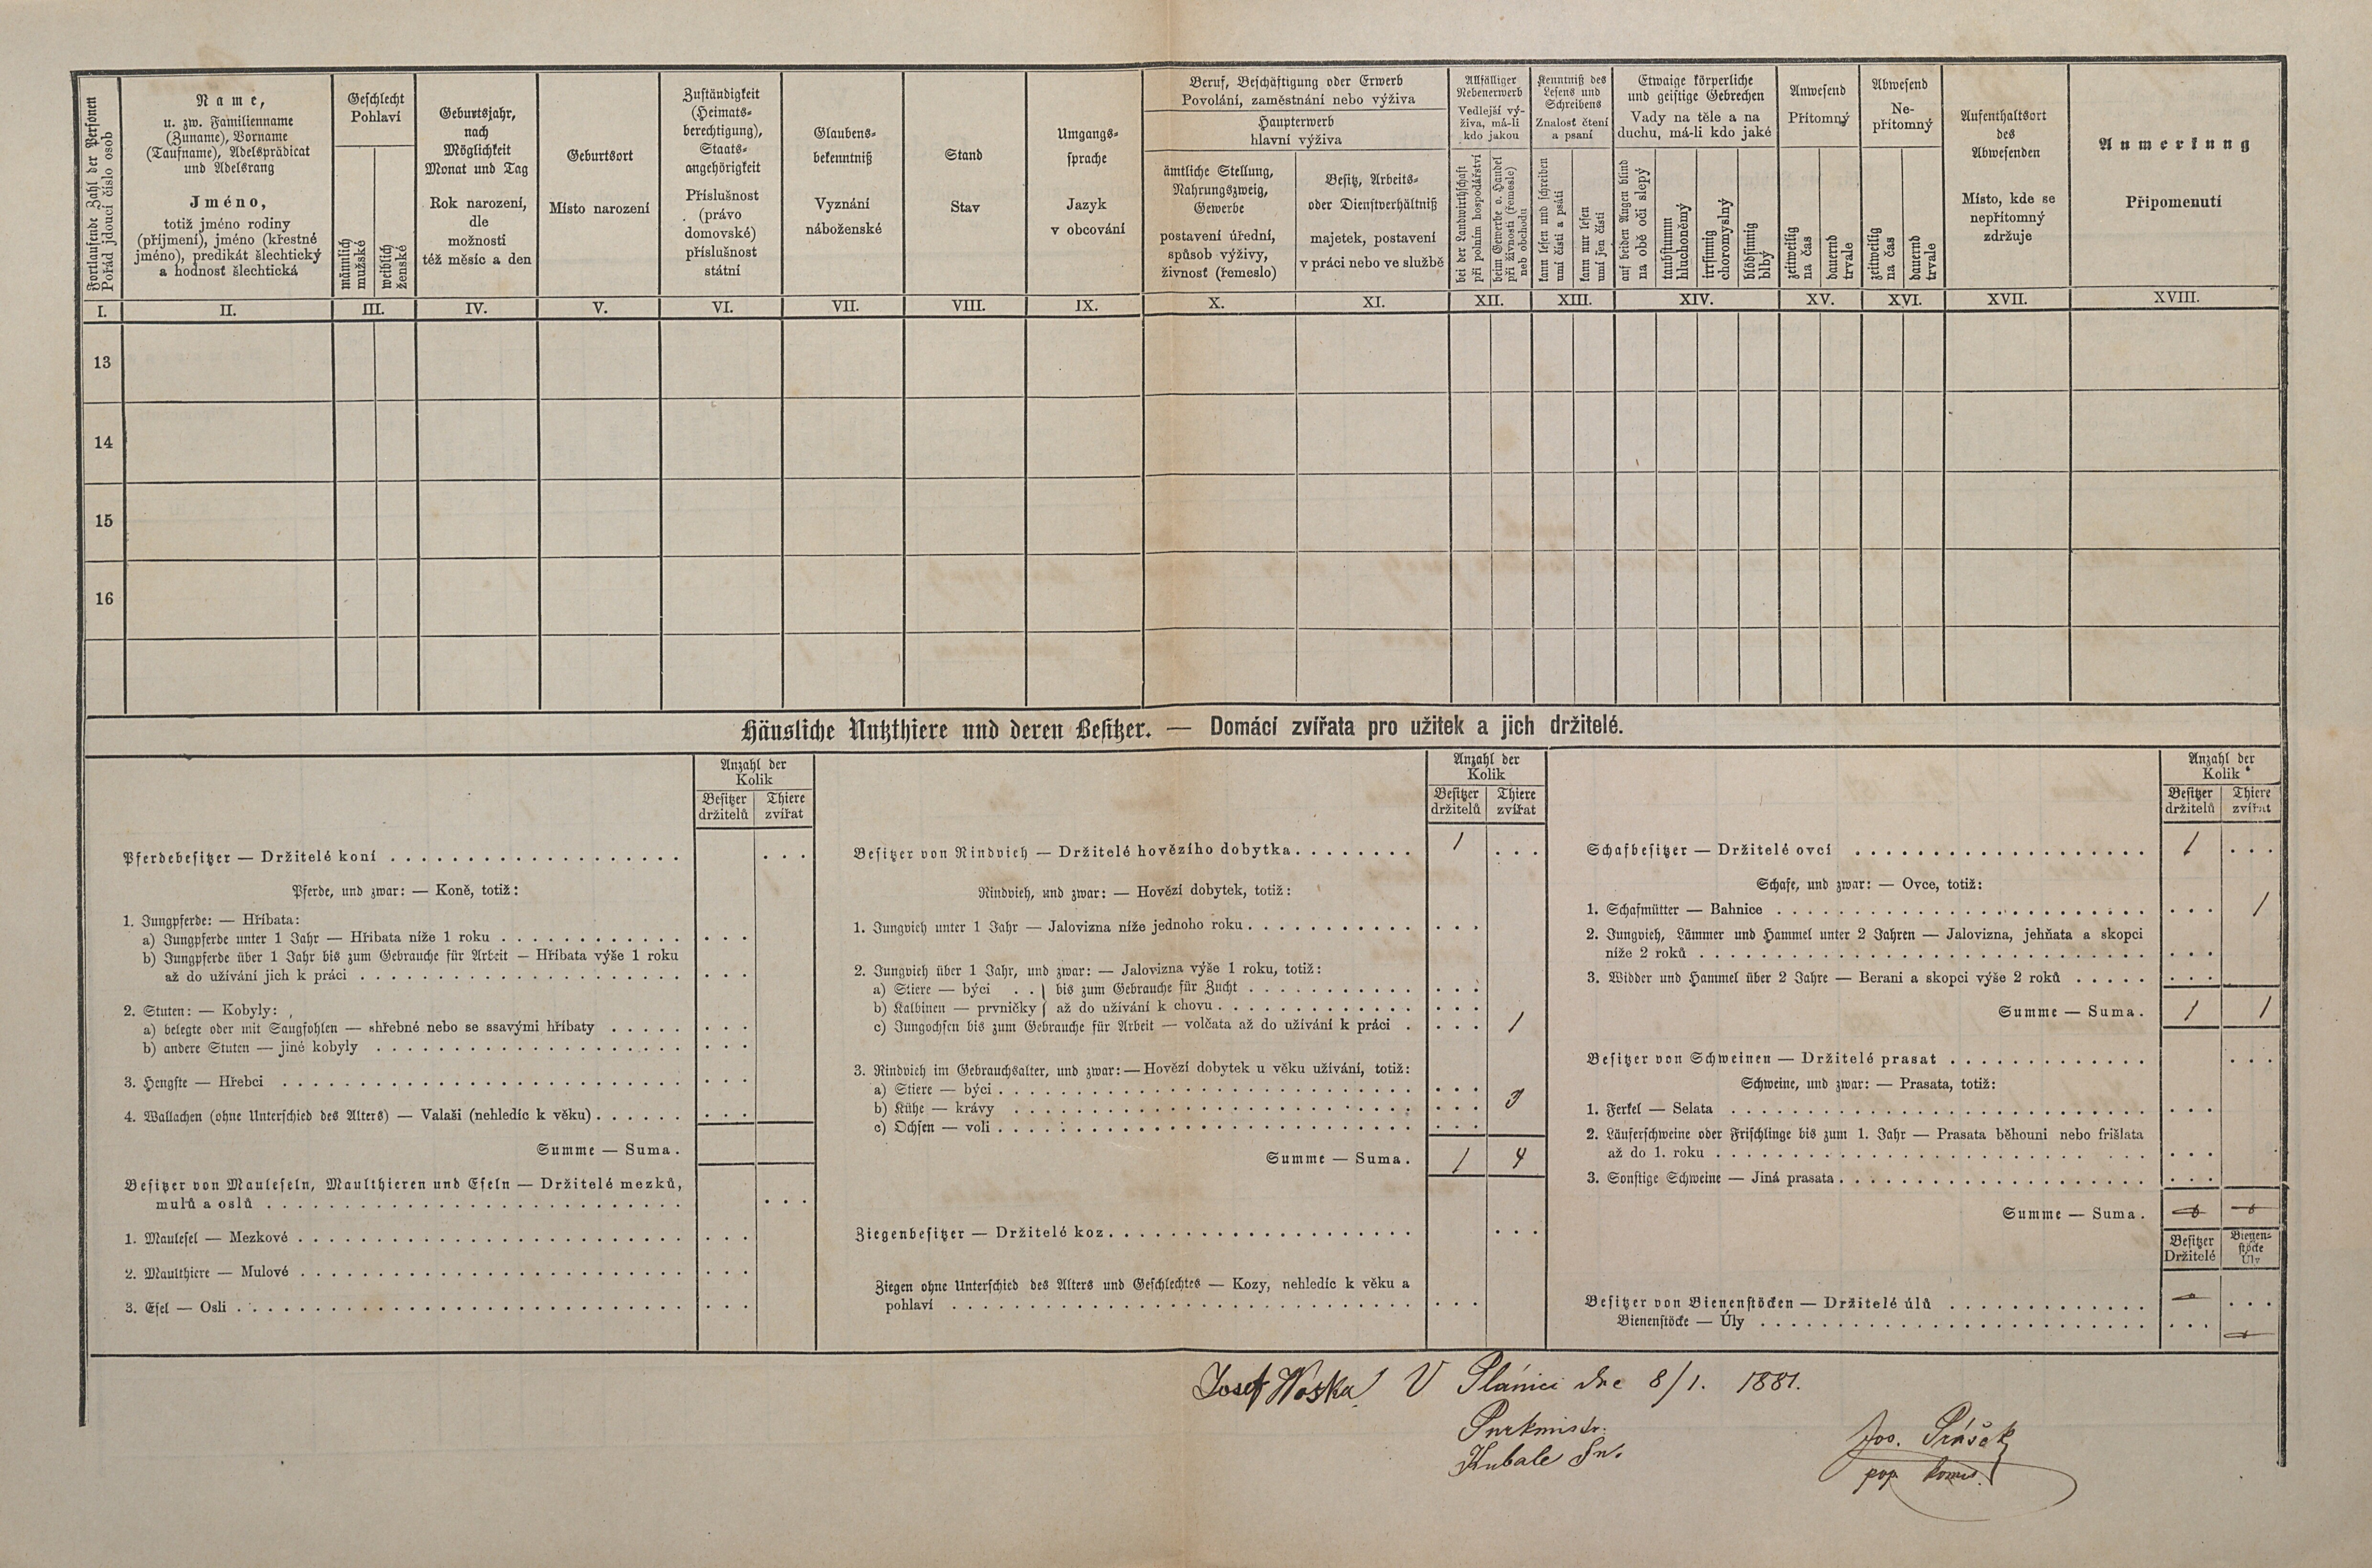 Fortlaufende Zahl der Personen
Pořád jdoucí číslo osob
Name,
u. zw. Familienname
(Zuname), Vorname
(Taufname), Adelsprädicat
und Adelsrang
Jméno,
totiž jméno rodiny
(příjmení), jméno (křestné
jméno), predikát šlechtický
a hodnost šlechtická
Geschlecht
Pohlaví
männlich
mužské
weiblich
ženské
Geburtsjahr,
nach
Möglichkeit
Monat und Tag
Rok narození,
dle
možnosti
též měsíc a den
Geburtsort
Místo narození
Zuständigkeit
(Heimats-
berechtigung),
Staats-
angehörigkeit
Příslušnost
(právo
domovské)
příslušnost
státní
Glaubens-
bekenntniß
Vyznání
náboženské
Stand
Stav
Umgangs-
sprache
Jazyk
v obcování
Beruf, Beschäftigung oder Erwerb
Povolání, zaměstnání nebo výživa
Haupterwerb
hlavní výživa
ämtliche Stellung,
Nahrungszweig,
Gewerbe
postavení úřední,
spůsob výživy,
živnost (řemeslo)
Besitz, Arbeits-
oder Dienstverhältniß
majetek, postavení
v práci nebo ve službě
Allfälliger
Nebenerwerb
Vedlejší vý-
živa, má-li
kdo jakou
bei der Landwirthschaft
při polním hospodářství
beim Gewerbe o. Handel
při živnosti (řemesle)
neb obchodu
Kenntniß des
Lesens und
Schreibens
Znalost čtení
a psaní
kann lesen und schreiben
umí čísti a psáti
kann nur lesen
umí jen čísti
Etwaige körperliche
und geistige Gebrechen
Vady na těle a na
duchu, má-li kdo jaké
auf beiden Augen blind
na obě oči slepý
taubstumm
hluchoněmý
irrsinnig
choromyslný
blödsinnig
blbý
Anwesend
Přítomný
zeitweilig
na čas
dauernd
trvale
Abwesend
Ne-
přítomný
zeitweilig
na čas
dauernd
trvale
Aufenthaltsort
des
Abwesenden
Místo, kde se
nepřítomný
zdržuje
Anmerkung
Připomenutí
I. II. III. IV. V. VI. VII. VIII. IX. X. XI. XII. XIII. XIV. XV. XVI. XVII. XVIII.
13
14
15
16
Häusliche Nutzthiere und deren Besitzer. — Domácí zvířata pro užitek a jich držitelé.
Anzahl der
Kolik
Besitzer Thiere
držitelů zvířat
Pferdebesitzer — Držitelé koní
Pferde, und zwar: — Koně, totiž:
1. Jungpferde: — Hříbata:
a) Jungpferde unter 1 Jahr — Hříbata níže 1 roku
b) Jungpferde über 1 Jahr bis zum Gebrauche für Arbeit — Hříbata výše 1 roku
až do užívání jich k práci
2. Stuten: — Kobyly:
a) belegte oder mit Saugfohlen — shřebné nebo se ssavými hříbaty
b) andere Stuten — jiné kobyly
3. Hengste — Hřebci
4. Wallachen (ohne Unterschied des Alters) — Valaši (nehledíc k věku)
Summe — Suma.
Besitzer von Mauleseln, Maulthieren und Eseln — Držitelé mezků,
mulů a oslů
1. Maulesel — Mezkové
2. Maulthiere — Mulové
3. Esel — Osli
Anzahl der
Kolik
Besitzer Thiere
držitelů zvířat
Besitzer von Rindvieh — Držitelé hovězího dobytka 1
Rindvieh, und zwar: — Hovězí dobytek, totiž:
1. Jungvieh unter 1 Jahr — Jalovizna níže jednoho roku
2. Jungvieh über 1 Jahr, und zwar: — Jalovizna výše 1 roku, totiž:
a) Stiere — býci . . } bis zum Gebrauche für Zucht
b) Kalbinen — prvničky } až do užívání k chovu
c) Jungochsen bis zum Gebrauche für Arbeit — volčata až do užívání k práci 1
3. Rindvieh im Gebrauchsalter, und zwar: — Hovězí dobytek u věku užívání, totiž:
a) Stiere — býci
b) Kühe — krávy 3
c) Ochsen — voli
Summe — Suma. 1 4
Ziegenbesitzer — Držitelé koz
Ziegen ohne Unterschied des Alters und Geschlechtes — Kozy, nehledíc k věku a
pohlaví
Anzahl der
Kolik
Besitzer Thiere
držitelů zvířat
Schafbesitzer — Držitelé ovcí 1
Schafe, und zwar: — Ovce, totiž:
1. Schafmütter — Bahnice 1
2. Jungvieh, Lämmer und Hammel unter 2 Jahren — Jalovizna, jehňata a skopci
níže 2 roků
3. Widder und Hammel über 2 Jahre — Berani a skopci výše 2 roků
Summe — Suma. 1 1
Besitzer von Schweinen — Držitelé prasat
Schweine, und zwar: — Prasata, totiž:
1. Ferkel — Selata
2. Läuferschweine oder Frischlinge bis zum 1. Jahr — Prasata běhouni nebo frišlata
až do 1. roku
3. Sonstige Schweine — Jiná prasata
Summe — Suma.
Besitzer Bienen-
Držitelé stöcke
Úly
Besitzer von Bienenstöcken — Držitelé úlů
Bienenstöcke — Úly
Josef Woska V Plánici dne 8/1. 1881.
Purkmistr.
Kubale
Jos. Prášek
pop. komis.